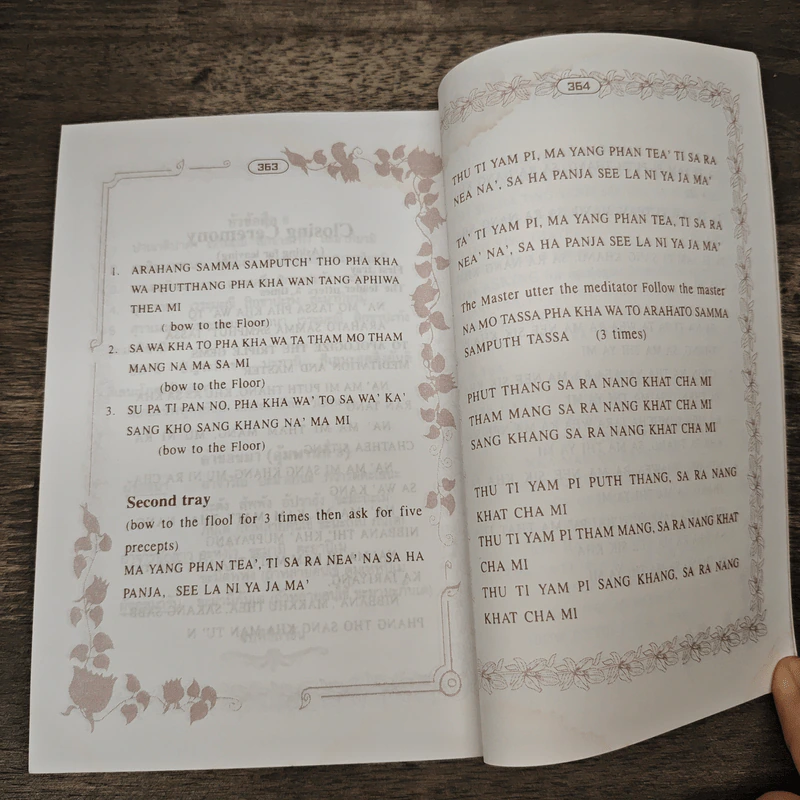 363
1. ARAHANG SAMMA SAMPUTCH' THO PHA KHA
WA PHUTTHANG PHA KHA WAN TANG APHIWA
THEA MI
( bow to the Floor)
2. SA WA KHA TO PHA KHA WA TA THAM MO THAM
MANG NA MA SA MI
(bow to the Floor)
3. SU PA TI PAN NO, PHA KHA WA' TO SA WA' KA'
SANG KHO SANG KHANG NA' MA MI
(bow to the Floor)
Second tray
(bow to the flool for 3 times then ask for five
precepts)
MA YANG PHAN TEA', TI SA RA NEA' NA SA HA
PANJA, SEE LA NI YA JA MA'
364
THU TI YAM PI, MA YANG PHAN TEA' TI SA RA
NEA NA', SA HA PANJA SEE LA NI YA JA MA'
TA' TI YAM PI, MA YANG PHAN TEA, TI SA RA
NEA' NA', SA HA PANJA SEE LA NI YA JA MA'
The Master utter the meditator Follow the master
NA MO TASSA PHA KHA WA TO ARAHATO SAMMA
SAMPUTH TASSA (3 times)
PHUT THANG SA RA NANG KHAT CHA MI
THAM MANG SA RA NANG KHAT CHA MI
SANG KHANG SA RA NANG KHAT CHA MI
THU TI YAM PI PUTH THANG, SA RA NANG
KHAT CHA MI
THU TI YAM PI THAM MANG, SA RA NANG KHAT
CHA MI
THU TI YAM PI SANG KHANG, SA RA NANG
KHAT CHA MI